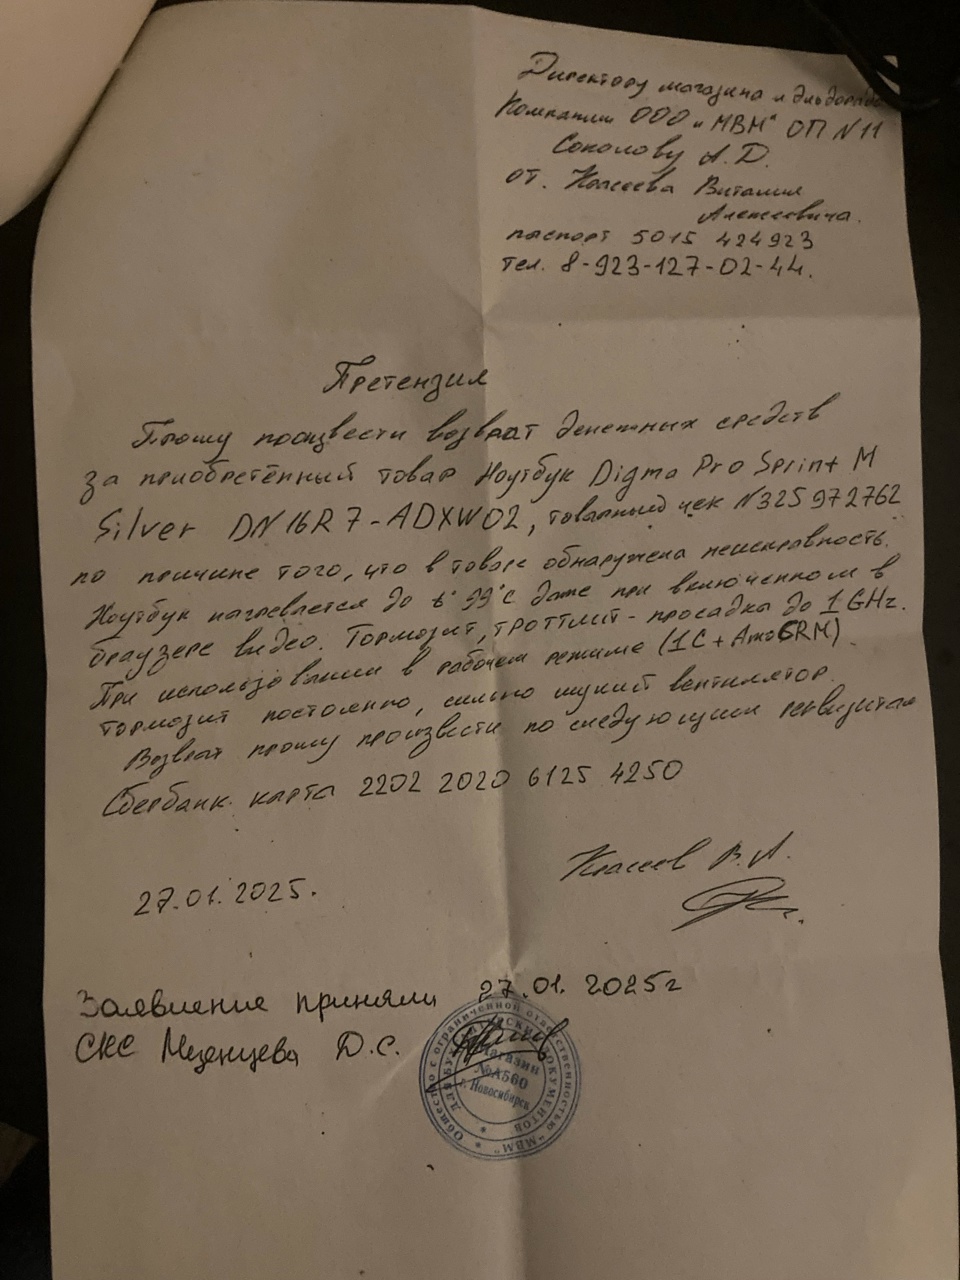 Директору магазина "Эльдорадо"
Компании ООО "МВМ" ОП N 11
Соколову А.Д.
от. Киасеева Виталия
Алексеевича.
паспорт 5015 424923
тел. 8-923-127-02-44.
Претензия
Прошу произвести возврат денежных средств
за приобретённый товар Ноутбук Digma Pro Sprint M
Silver DN16R7-ADXW02, товарный чек N325972762
по причине того, что в товаре обнаружена неисправность.
Ноутбук нагревается до t° 99°C даже при включенном в
браузере видео. Тормозит, троттлит - просадка до 1GHz.
При использовании в рабочем режиме (1С + AmoCRM)
тормозит постоянно, сильно шумит вентилятор.
Возврат прошу произвести по следующим реквизитам
Сбербанк карта 2202 2020 6125 4250
В.А.
27.01.2025.
Заявление приняли 27.01.2025г
СКС Мезенцева Д.С.
Общество с ограниченной ответственностью "МВМ"
ДЛЯ БУХГАЛТЕРСКИХ ДОКУМЕНТОВ
Магазин
№А560
г. Новосибирск